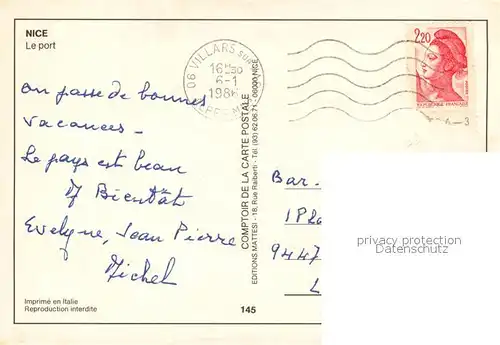 NICE
Le port
06 VILLARS sur
16 H30
6-1
1986
ALPES M
2,20
REPUBLIQUE FRANÇAISE
on passe de bonnes
vacances -
Le pays est beau
Bientôt
Evelyne, Jean Pierre
Michel
COMPTOIR DE LA CARTE POSTALE
EDITIONS MATTESI - 18, Rue Raiberti - Tél. (93) 62.06.71 - 06000 NICE
Bar.
1P20
9447
L
privacy protection
Datenschutz
Imprimé en Italie
Reproduction interdite
145